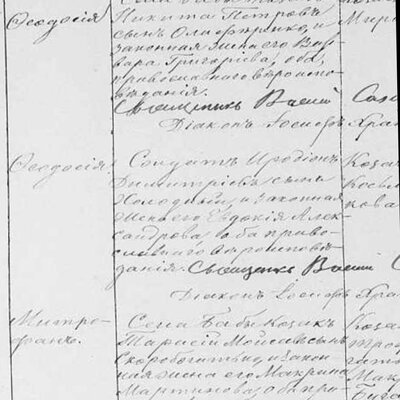 Ѳеодосія.
Никита Петровъ
сынъ
законная жена его Вар-
вара Григоріева, оба
православнаго вѣроиспо-
вѣданія.
Священникъ Василій
Діаконъ Іосифъ Хра
Ѳеодосія.
Солдатъ Иродіонъ
Димитріевъ сынъ
Холодный, и законная
жена его Евдокія Алек-
сандрова, оба право-
славнаго вѣроисповѣ-
данія. Священникъ Василій
Діаконъ Іосифъ Хра
Козач
Козьм
кова
Митро-
фанъ.
Села козакъ
Тарасій Моисеевъ сынъ
Скоробогатый, и закон-
ная жена его Макрина
Мартинова, оба пра-
Козач
Мак